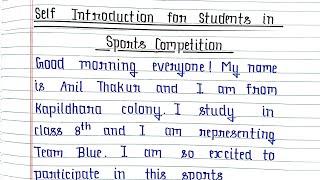 Self Introduction for Students in
Sports Competition
Good morning everyone! My name
is Anil Thakur and I am from
Kapildhara colony. I study in
class 8th and I am representing
Team Blue. I am so excited to
participate in this sports